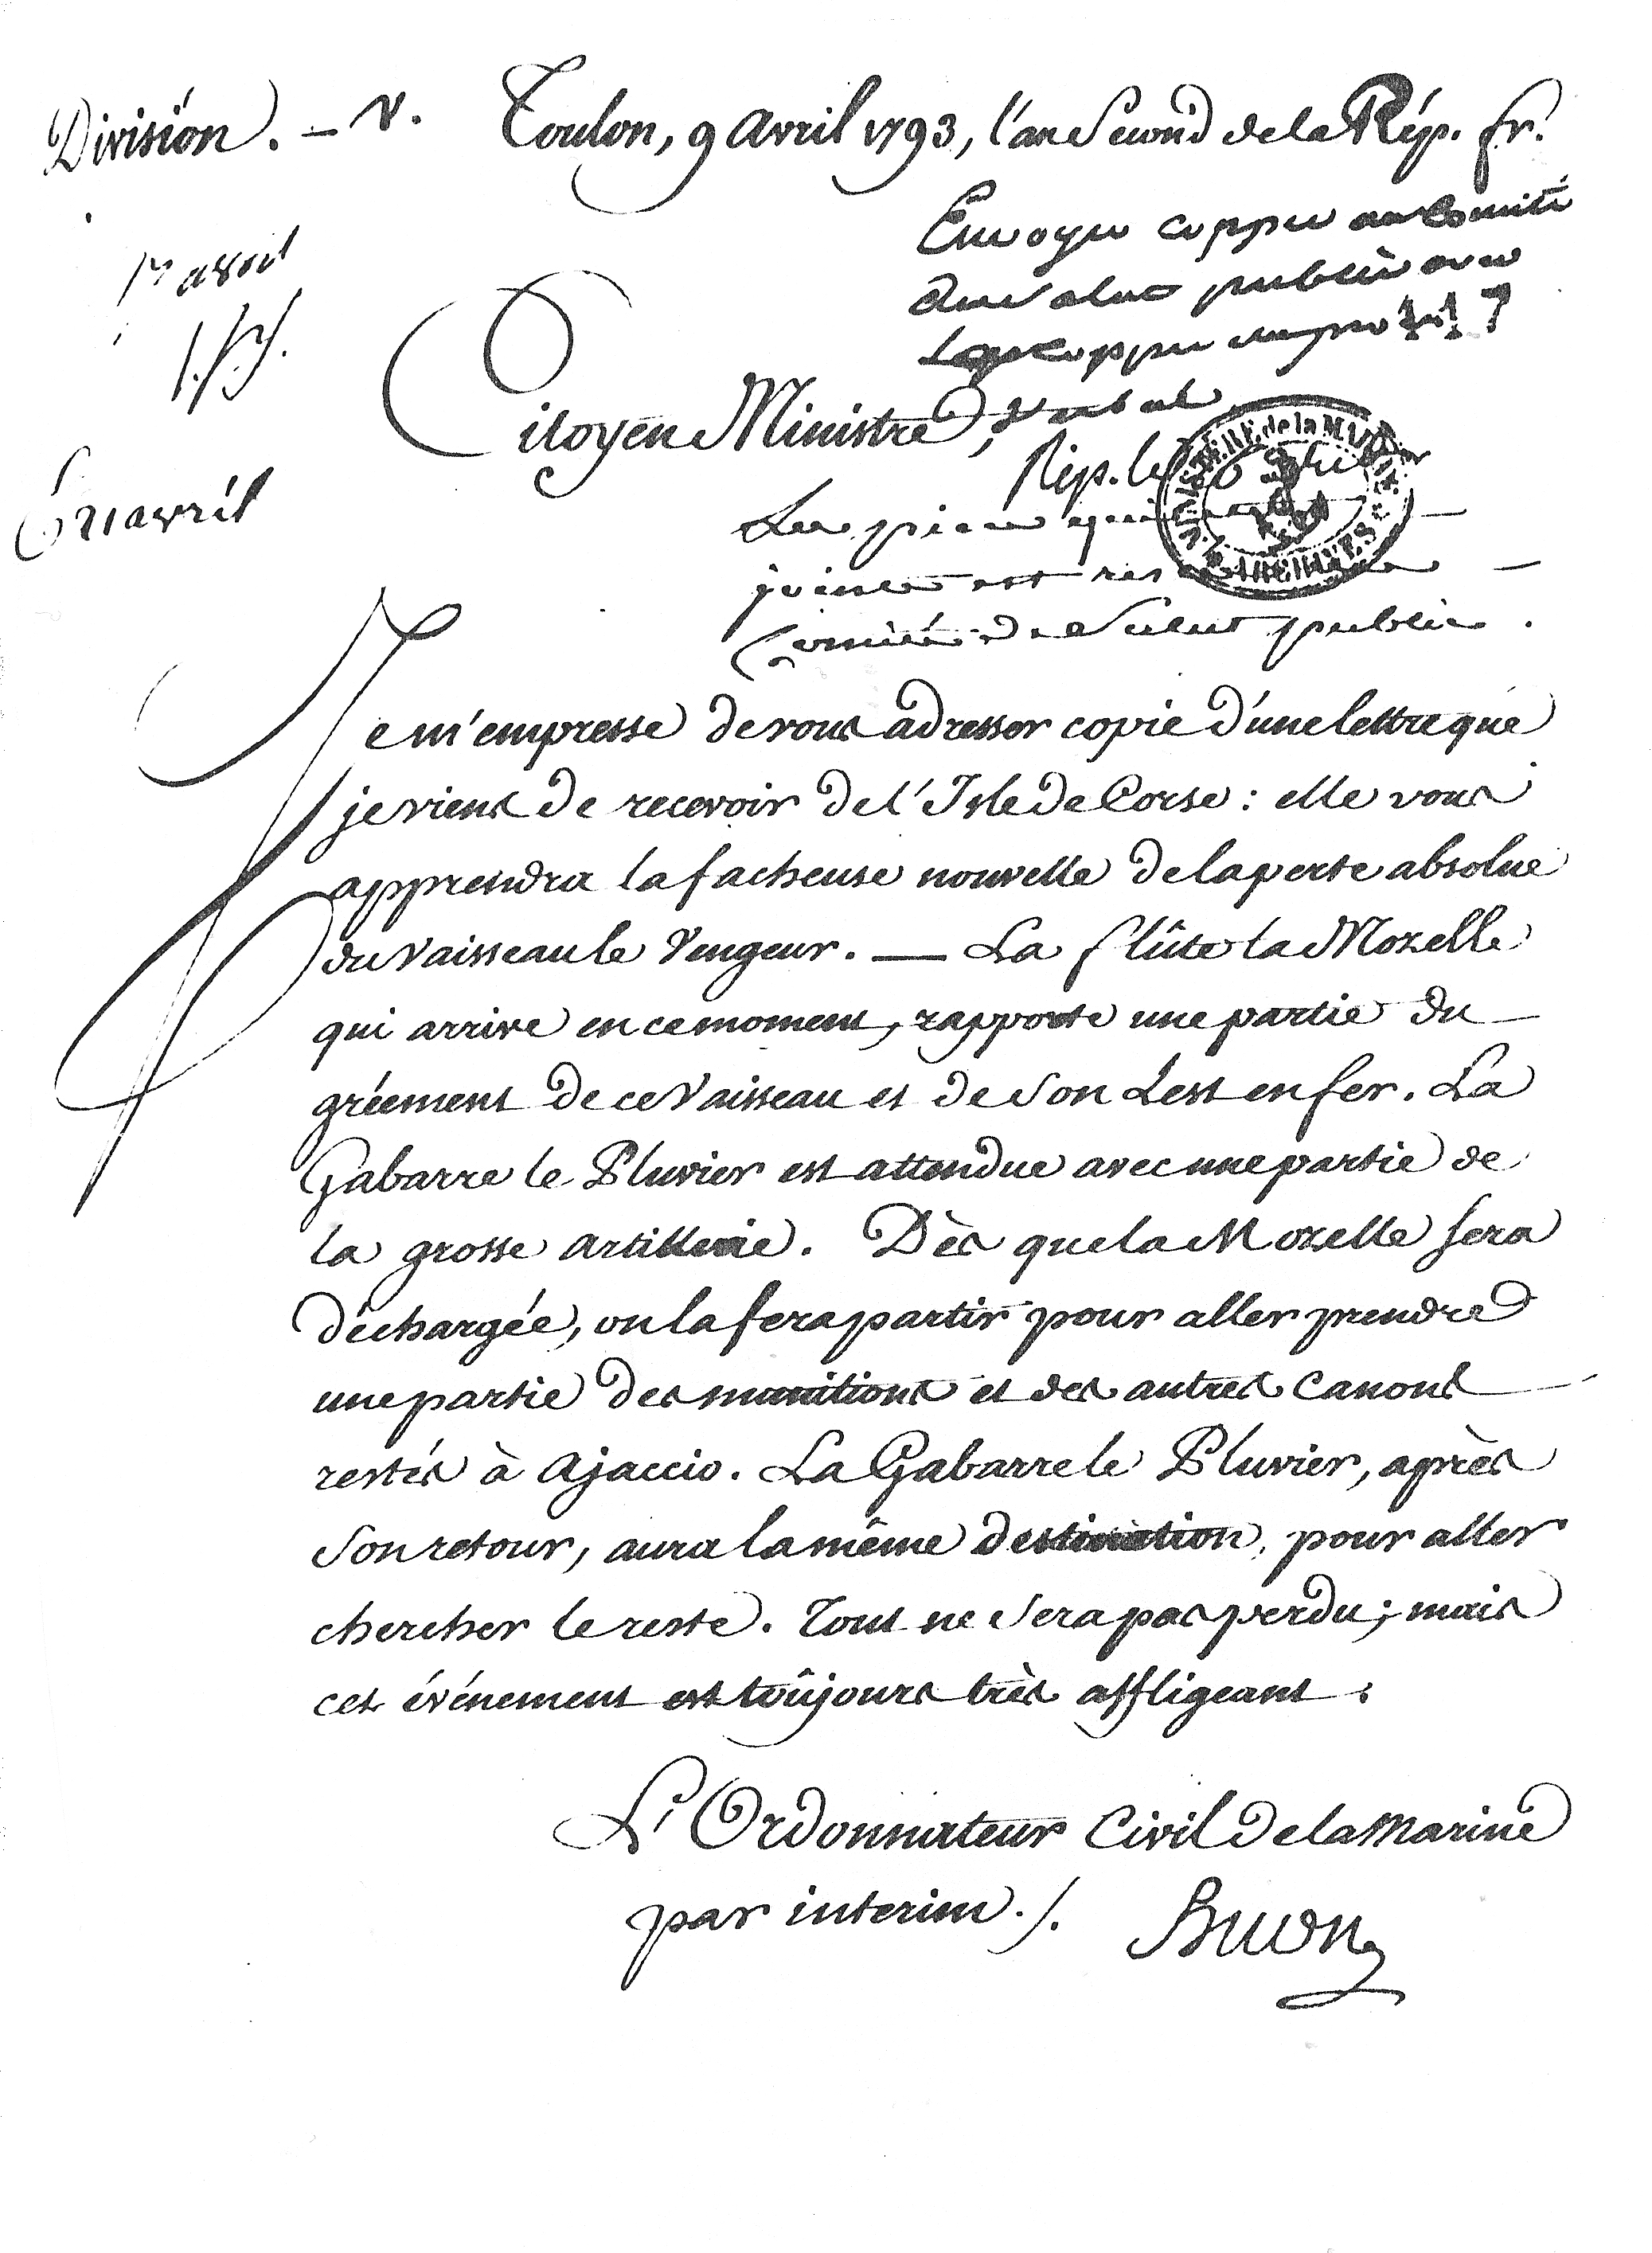 Division. — V. Toulon, 9 avril 1793, l'an Second de la Rép. fr.
Envoyer coppie au Comité
de Salut public avec
17 avril
Citoyen Ministre,
verbal
Rép. le
La piece qui
21 avril
jointe est au
Comité de Salut public.
Je m'empresse de vous adresser copie d'une lettre que
je viens de recevoir de l'Isle de Corse : elle vous
apprendra la facheuse nouvelle de la perte absolue
du Vaisseau le Vengeur. — La flûte la Mozelle
qui arrive en ce moment, rapporte une partie du
gréement de ce Vaisseau et de Son Lest en fer. La
Gabarre le Pluvier est attendue avec une partie de
la grosse artillerie. Dès que la Mozelle sera
déchargée, on la fera partir pour aller prendre
une partie des munitions et des autres Canons
restés à Ajaccio. La Gabarre le Pluvier, après
Son retour, aura la même destination, pour aller
chercher le reste. Tout ne Sera pas perdu; mais
cet événement est toûjours très affligeant.
L'Ordonnateur Civil de la Marine
par interim ./.